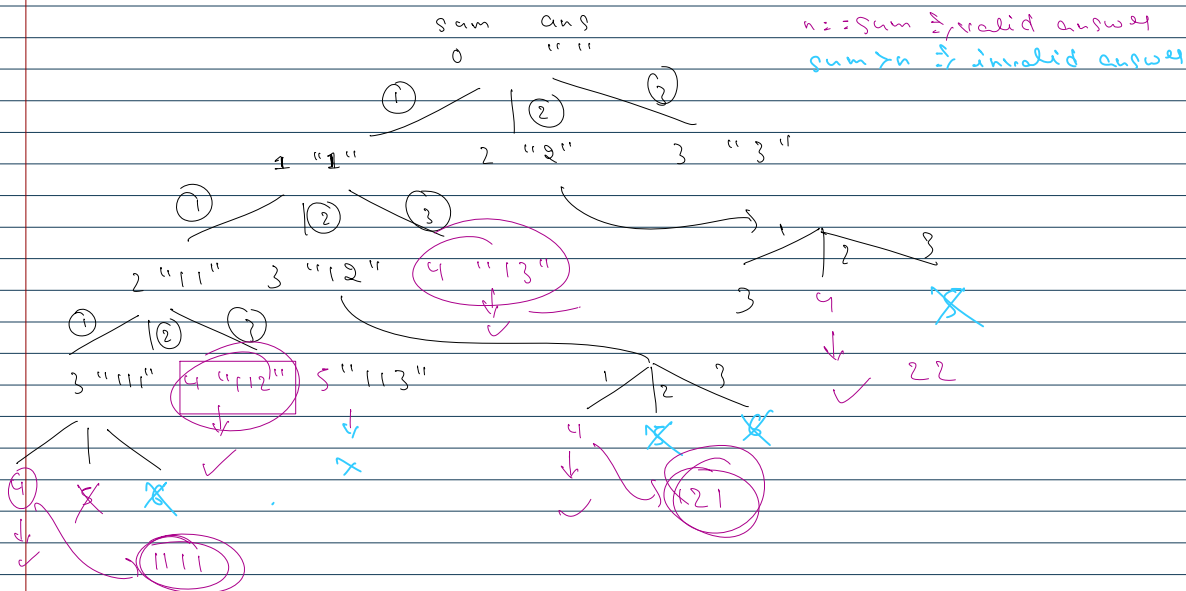 sum ans
n==sum => valid answer
0 " "
sum>n => invalid answer
1 2 3
1 "1" 2 "2" 3 "3"
1 2 3
1 2 3
2 "11" 3 "12" 4 "13"
3 4 5
1 2 3
3 "111" 4 "112" 5 "113"
1 2 3
22
4 5 6
4 5 6
121
1111